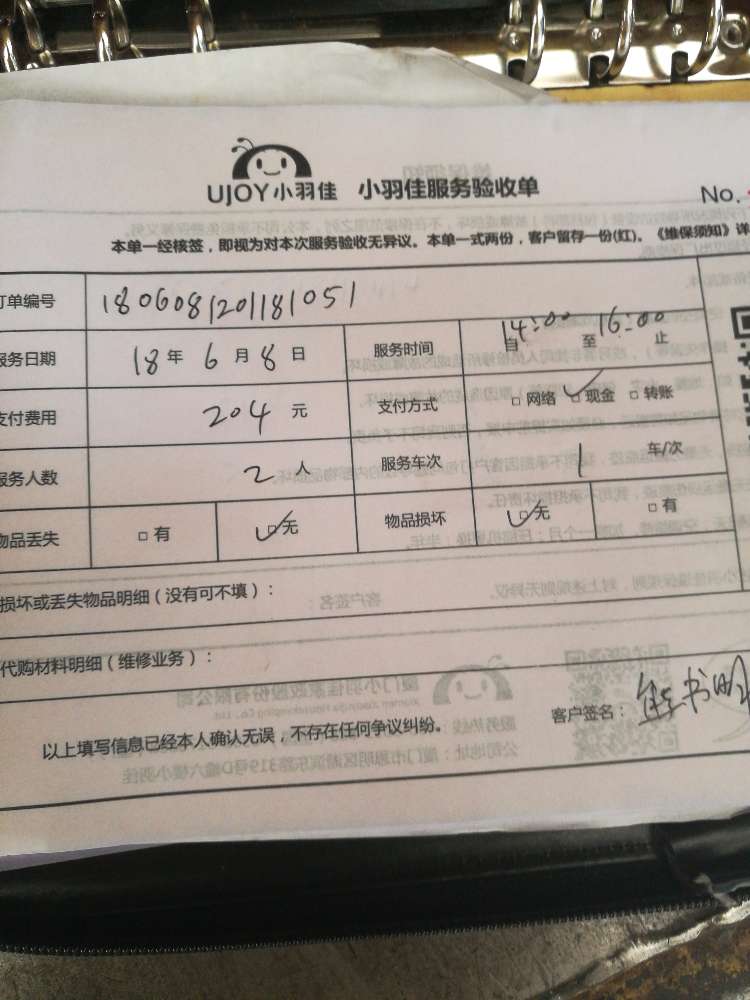 UJOY小羽佳 小羽佳服务验收单
No.
本单一经核签，即视为对本次服务验收无异议。本单一式两份，客户留存一份(红)。《维保须知》详
订单编号 180608201181051
服务日期 18年6月8日 服务时间 14:00自 至 16:00止
支付费用 204元 支付方式 □网络 ☑现金 □转账
服务人数 2人 服务车次 1 车/次
物品丢失 □有 ☑无 物品损坏 ☑无 □有
损坏或丢失物品明细（没有可不填）：
代购材料明细（维修业务）：
以上填写信息已经本人确认无误，不存在任何争议纠纷。
客户签名：